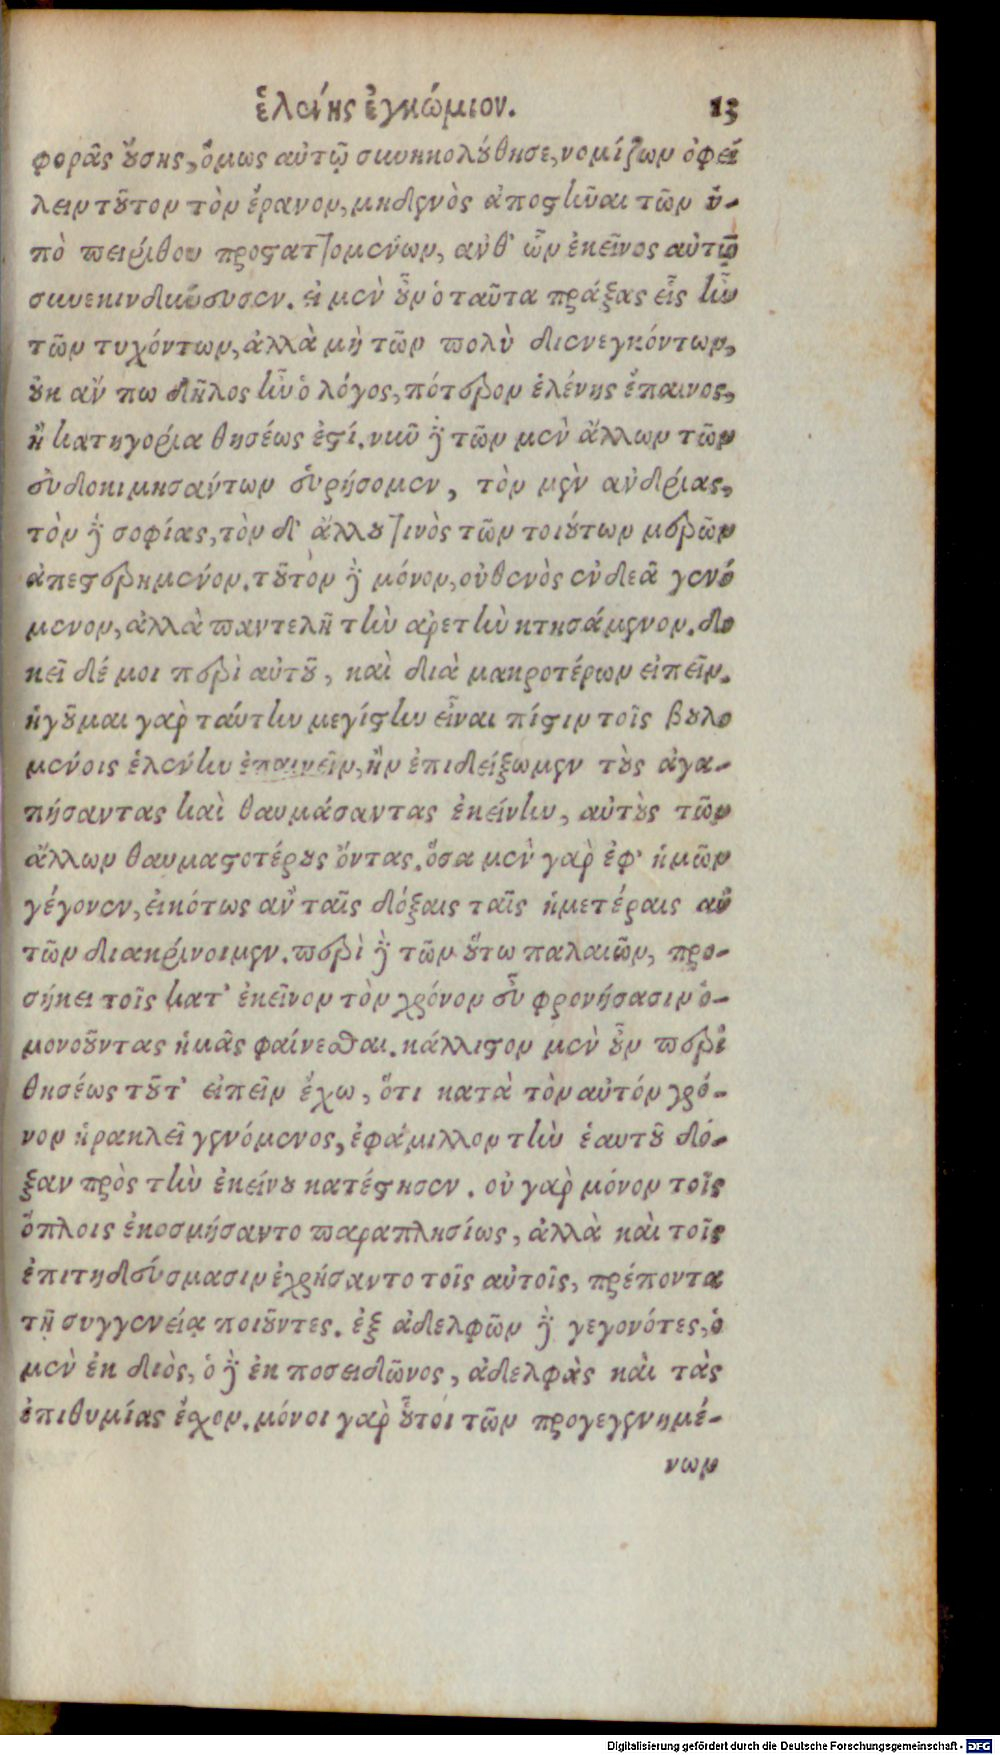 ἑλένης ἐγκώμιον. 13
φορᾶς οὔσης, ὅμως αὐτῷ συνηκολούθησε, νομίζων ὀφεί
λειν τοῦτον τὸν ἔρανον, μηδενὸς ἀποστῆναι τῶν ὑ-
πὸ πειρίθου προσταττομένων, ἀνθ' ὧν ἐκεῖνος αὐτῷ
συνεκινδύνευσεν. εἰ μὲν οὖν ὁ ταῦτα πράξας εἷς ἦν
τῶν τυχόντων, ἀλλὰ μὴ τῶν πολὺ διενεγκόντων,
οὐκ ἄν πω δῆλος ἦν ὁ λόγος, πότερον ἑλένης ἔπαινος,
ἢ κατηγορία θησέως ἐστί. νῦν δὲ τῶν μὲν ἄλλων τῶν
εὐδοκιμησάντων εὑρήσομεν, τὸν μὲν ἀνδρίας,
τὸν δὲ σοφίας, τὸν δ' ἄλλου τινὸς τῶν τοιούτων μερῶν
ἀπεστερημένον. τοῦτον δὲ μόνον, οὐθενὸς ἐνδεᾶ γενό
μενον, ἀλλὰ παντελῆ τὴν ἀρετὴν κτησάμενον. δο
κεῖ δέ μοι περὶ αὐτοῦ, καὶ διὰ μακροτέρων εἰπεῖν.
ἡγοῦμαι γὰρ ταύτην μεγίστην εἶναι πίστιν τοῖς βουλο
μένοις ἑλένην ἐπαινεῖν, ἢν ἐπιδείξωμεν τοὺς ἀγα-
πήσαντας καὶ θαυμάσαντας ἐκείνην, αὐτοὺς τῶν
ἄλλων θαυμαστοτέρους ὄντας. ὅσα μὲν γὰρ ἐφ' ἡμῶν
γέγονεν, εἰκότως ἂν ταῖς δόξαις ταῖς ἡμετέραις αὐ
τῶν διακρίνοιμεν. περὶ δὲ τῶν οὕτω παλαιῶν, προ-
σήκει τοῖς κατ' ἐκεῖνον τὸν χρόνον εὖ φρονήσασιν ὁ-
μονοοῦντας ἡμᾶς φαίνεσθαι. κάλλιστον μὲν οὖν περὶ
θησέως τοῦτ' εἰπεῖν ἔχω, ὅτι κατὰ τὸν αὐτόν χρό-
νον ἡρακλεῖ γενόμενος, ἐφάμιλλον τὴν ἑαυτοῦ δό-
ξαν πρὸς τὴν ἐκείνου κατέστησεν. οὐ γὰρ μόνον τοῖς
ὅπλοις ἐκοσμήσαντο παραπλησίως, ἀλλὰ καὶ τοῖς
ἐπιτηδεύσμασιν ἐχρήσαντο τοῖς αὐτοῖς, πρέποντα
τῇ συγγενείᾳ ποιοῦντες. ἐξ ἀδελφῶν δὲ γεγονότες, ὁ
μὲν ἐκ διὸς, ὁ δὲ ἐκ ποσειδῶνος, ἀδελφὰς καὶ τὰς
ἐπιθυμίας ἔχον. μόνοι γὰρ οὗτοι τῶν προγεγενημέ-
νων
Digitalisierung gefördert durch die Deutsche Forschungsgemeinschaft - DFG